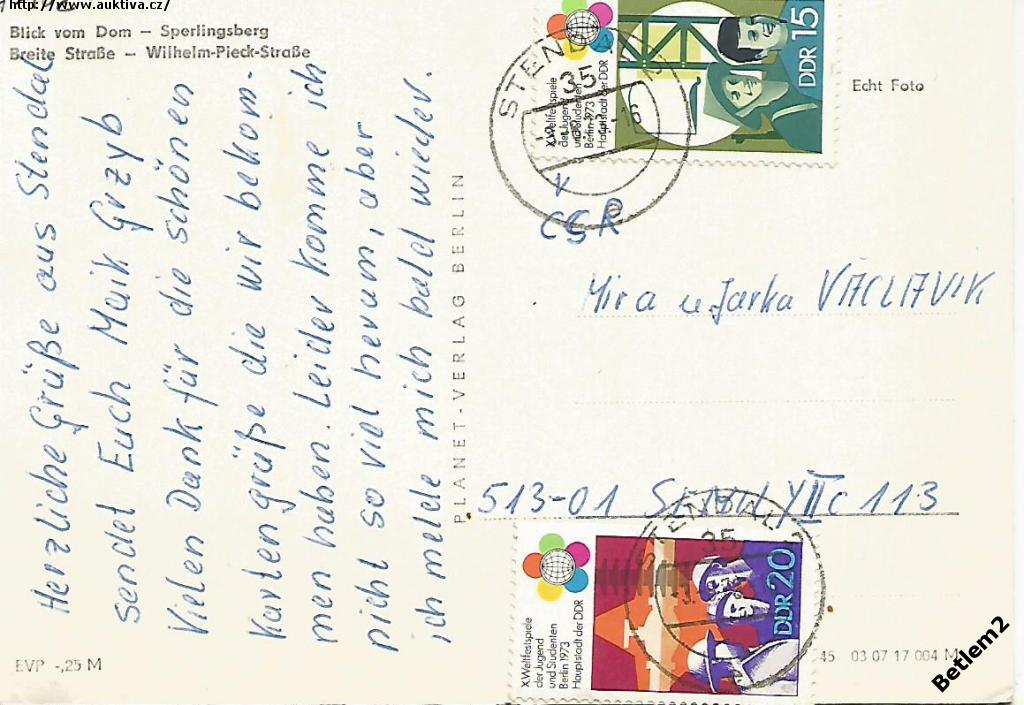 http://www.auktiva.cz/
Blick vom Dom – Sperlingsberg
Breite Straße – Wilhelm-Pieck-Straße
Herzliche Grüße aus Stendal
sendet Euch Maik Grzyb
Vielen Dank für die schönen
Kartengrüße die wir bekom-
men haben. Leider komme ich
nicht so viel herum, aber
ich melde mich bald wieder.
EVP -,25 M
PLANET-VERLAG BERLIN
X. Weltfestspiele
der Jugend
und Studenten
Berlin 1973
Hauptstadt der DDR
DDR 15
STENDAL
35
Echt Foto
v
CSR
Mira u Jarka VÁCLAVIK
513-01 SEMILY IIc 113
X. Weltfestspiele
der Jugend
und Studenten
Berlin 1973
Hauptstadt der DDR
DDR 20
STENDAL
35
45 03 07 17 004 M
Betlem2